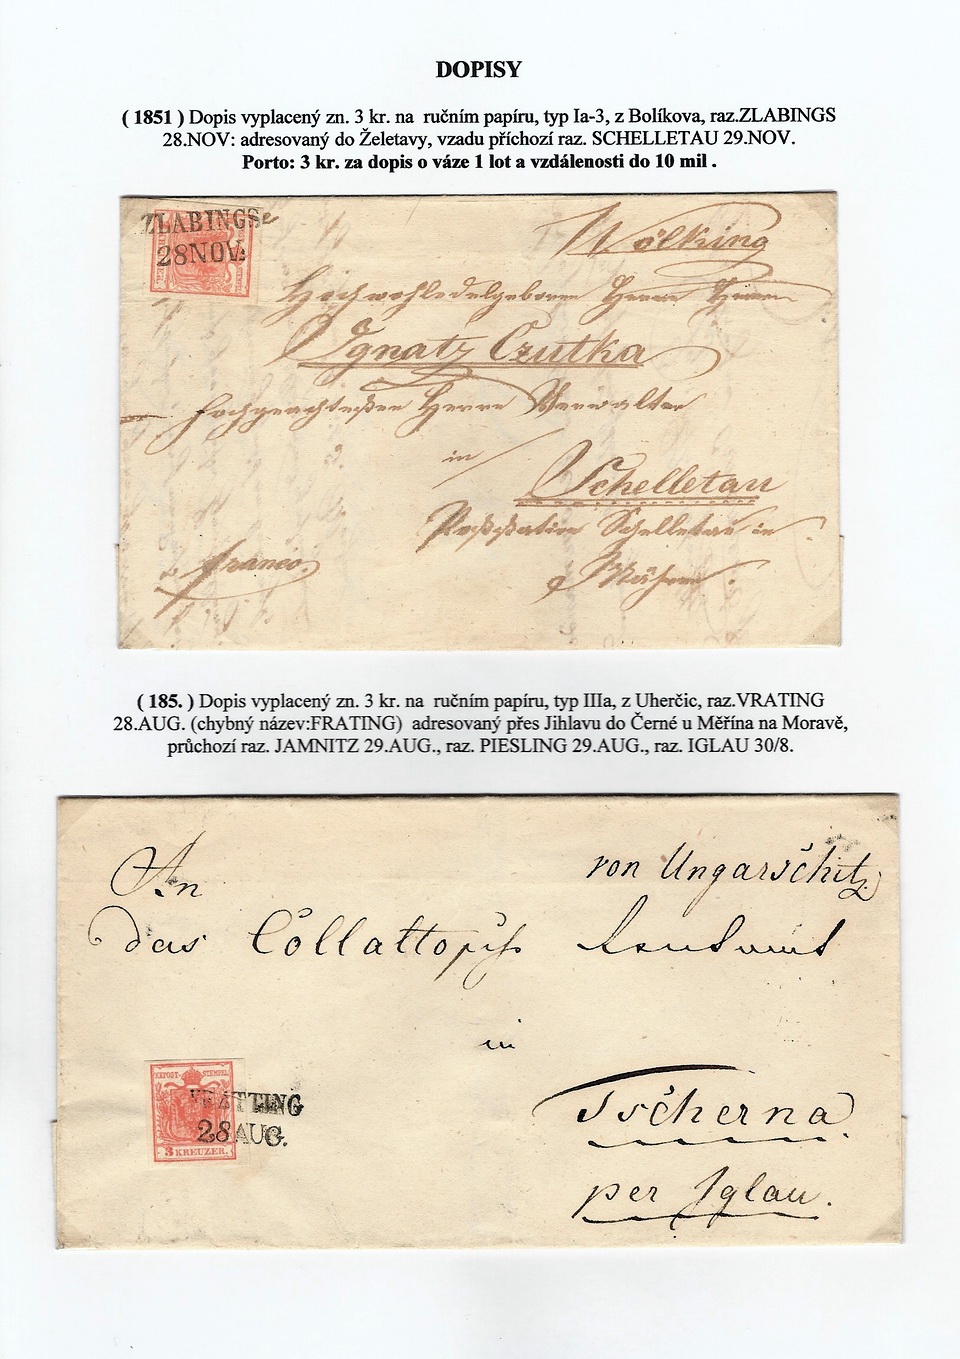 DOPISY
( 1851 ) Dopis vyplacený zn. 3 kr. na ručním papíru, typ Ia-3, z Bolíkova, raz.ZLABINGS
28.NOV: adresovaný do Želetavy, vzadu příchozí raz. SCHELLETAU 29.NOV.
Porto: 3 kr. za dopis o váze 1 lot a vzdálenosti do 10 mil .
ZLABINGS
28NOV:
Wölking
Hochwohledelgeboren Herrn Herrn
Ignatz Czutka
hochgeachtesten Herrn Verwalter
in
Schelletau
Poststation Schelletau in
Mähren
franco.
( 185. ) Dopis vyplacený zn. 3 kr. na ručním papíru, typ IIIa, z Uherčic, raz.VRATING
28.AUG. (chybný název:FRATING) adresovaný přes Jihlavu do Černé u Měřína na Moravě,
průchozí raz. JAMNITZ 29.AUG., raz. PIESLING 29.AUG., raz. IGLAU 30/8.
An
von Ungarschitz
das Collaltopsch
in
KKPOST-STEMPEL
VRATTING
28AUG.
3 KREUZER.
Tscherna
per Iglau.